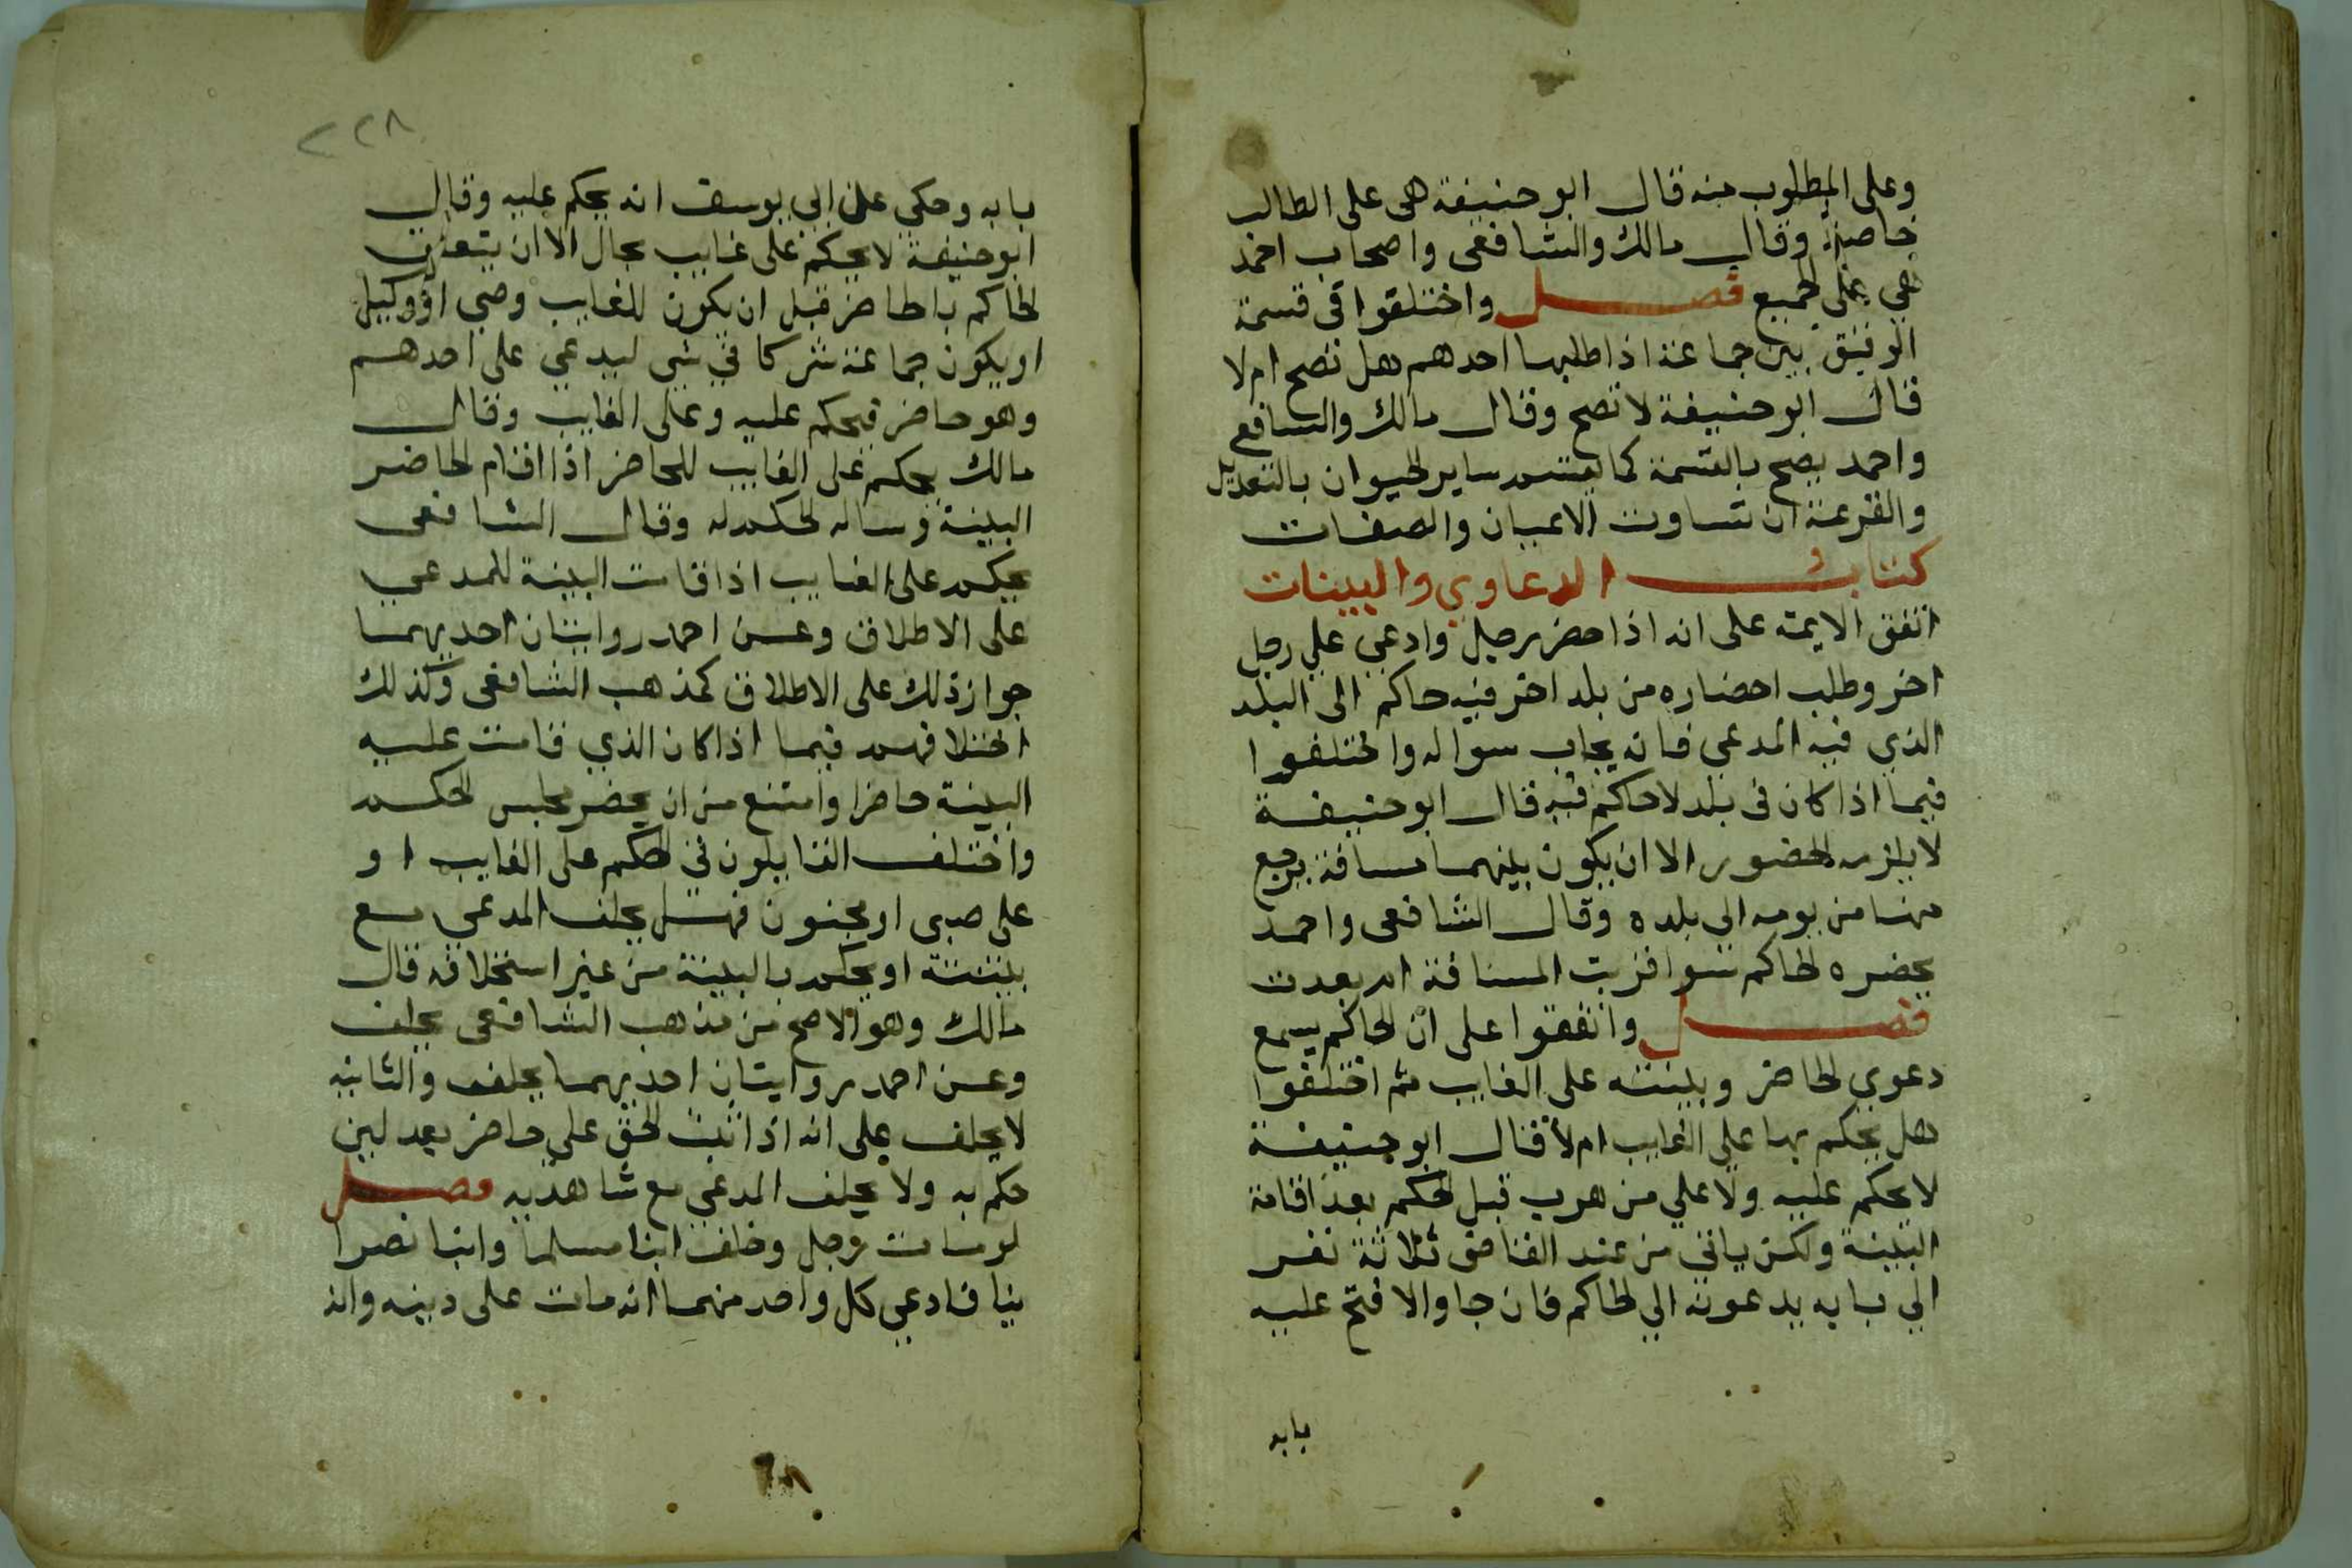 وعلى المطلوب منه قال ابو حنيفة هى على الطالب
خاصة وقال مالك والشافعى واصحاب احمد
هي على الجميع فصل واختلفوا فى قسمة
الرقيق بين جماعة اذا طلبها احدهم هل تصح ام لا
قال ابو حنيفة لا تصح وقال مالك والشافعي
واحمد يصح بالقسمة كما يقسم ساير الحيوان بالتعديل
والقرعة ان تساوت الاعيان والصفات
كتاب الدعاوي والبينات
اتفق الايمة على انه اذا حضر رجل وادعي علي رجل
اخر وطلب احضاره من بلد اخر فيه حاكم الى البلد
الذي فيه المدعي فانه يجاب سواله واختلفوا
فيما اذا كان فى بلد لا حاكم فيه قال ابو حنيفة
لا يلزمه الحضور الا ان يكون بينهما مسافة يرجع
منها من يومه الي بلده وقال الشافعى واحمد
يحضره الحاكم سوا قربت المسافة ام بعدت
فصل واتفقوا على ان الحاكم يسمع
دعوي الحاضر وبينته على الغايب ثم اختلفوا
هل يحكم بها على الغايب ام لا قال ابو حنيفة
لا يحكم عليه ولا علي من هرب قبل الحكم بعد اقامة
البينة ولكن ياتي من عند القاضى ثلاثة نفر
الي بابه يدعونه الي الحاكم فان جا والا فتح عليه
بابه
٢٢٨
بابه وحكي على ابي يوسف انه يحكم عليه وقال
ابو حنيفة لا يحكم على غايب بحال الا ان يتعلق
الحاكم بالحاضر قبل ان يكون للغايب وصي او وكيل
او يكون جماعة شركا في شي ليدعي على احدهم
وهو حاضر فيحكم عليه وعلى الغايب وقال
مالك يحكم على الغايب للحاضر اذا اقام الحاضر
البينة وساله الحكم له وقال الشافعى
يحكم على الغايب اذا قامت البينة للمدعي
على الاطلاق وعن احمد روايتان احديهما
جواز ذلك على الاطلاق كمذهب الشافعى وكذلك
اختلافهم فيما اذا كان الذي قامت عليه
البينة حاضرا وامتنع من ان يحضر مجلس الحكم
واختلف القايلون في الحكم على الغايب او
على صبى او مجنون فهل يحلف المدعي مع
بينته او يحكم بالبينة من غير استحلافه قال
مالك وهو الاصح من مذهب الشافعى يحلف
وعن احمد روايتان احديهما يحلف والثانيه
لا يحلف على انه اذا ثبت الحق على حاضر بعدلين
حكم به ولا يحلف المدعي مع شاهديه فصل
لو مات رجل وخلف ابنا مسلما وابنا نصرا
نيا فادعي كل واحد منهما انه مات على دينه وانه